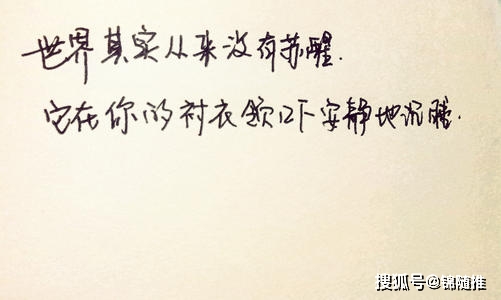 世界其实从来没有苏醒.
它在你的衬衣领口下安静地沉睡.
搜狐号@锦随推